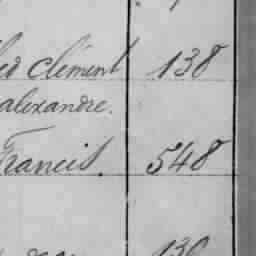 Clément 138
alexandre.
Francis. 548
130